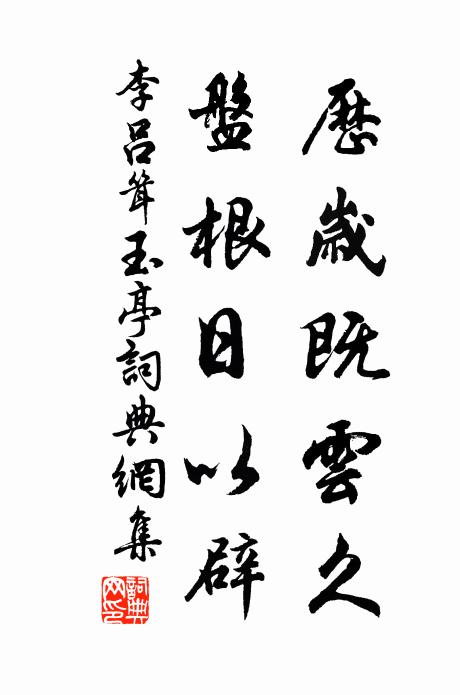 歷歲既雲久
盤根日以辟
李呂聳玉亭詞典網集
詞典網印